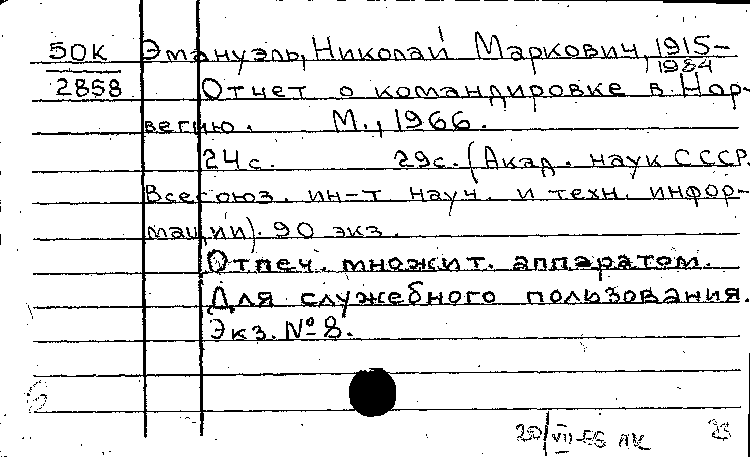 50К Эмануэль, Николай Маркович, 1915-
1984
2858 Отчет о командировке в Нор-
вегию. М., 1966.
24 с. 29с. (Акад. наук СССР.
Всесоюз. ин-т науч. и техн. инфор-
мации). 90 экз.
Отпеч. множит. аппаратом.
Для служебного пользования.
Экз. № 8.